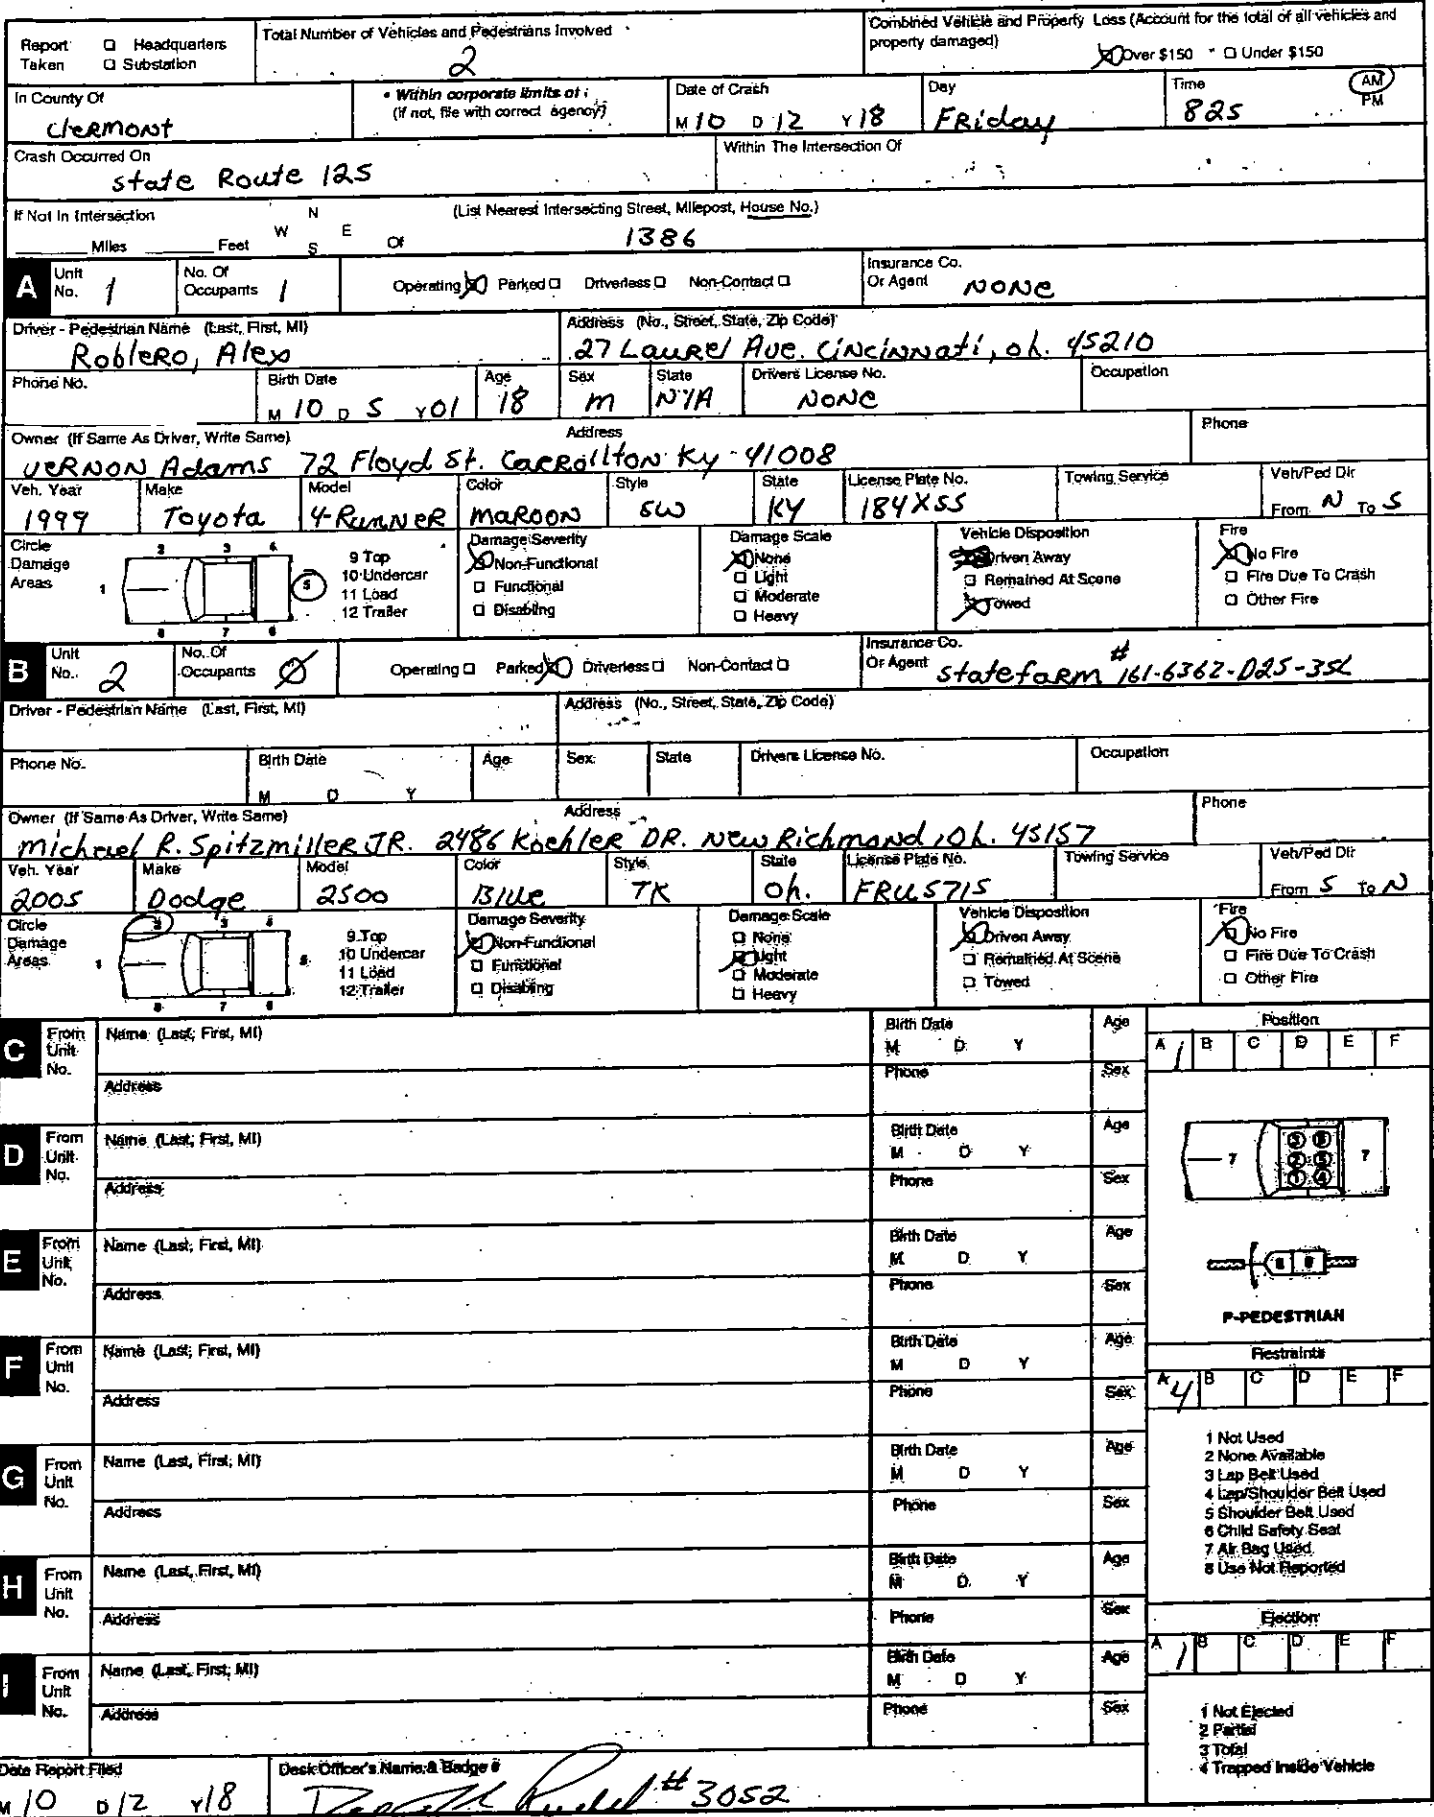 Report Taken ☐ Headquarters ☐ Substation
Total Number of Vehicles and Pedestrians Involved 2
Combined Vehicle and Property Loss (Account for the total of all vehicles and property damaged) ☒ Over $150 ☐ Under $150
In County Of CleRMONT
• Within corporate limits of: (if not, file with correct agency)
Date of Crash M 10 D 12 Y 18
Day FRiday
Time 825 AM PM
Crash Occurred On state Route 125
Within The Intersection Of
If Not In Intersection ____ Miles ____ Feet N W E S Of (List Nearest Intersecting Street, Milepost, House No.) 1386
A Unit No. 1 No. Of Occupants 1 Operating ☒ Parked ☐ Driverless ☐ Non-Contact ☐ Insurance Co. Or Agent NONE
Driver - Pedestrian Name (Last, First, MI) RobleRO, Alex
Address (No., Street, State, Zip Code) 27 LauRel Ave. CiNciNNati, oh. 45210
Phone No. Birth Date M 10 D 5 Y 01 Age 18 Sex M State N/A Drivers License No. NONE Occupation
Owner (If Same As Driver, Write Same) Address Phone
VeRNON Adams 72 Floyd St. CaRRollton Ky 41008
Veh. Year 1999 Make Toyota Model 4-RuNNeR Color MAROON Style SW State KY License Plate No. 184XSS Towing Service Veh/Ped Dir From N To S
Circle Damage Areas 1 2 3 4 5 6 7 8 9 Top 10 Undercar 11 Load 12 Trailer
Damage Severity ☒ Non-Functional ☐ Functional ☐ Disabling
Damage Scale ☒ None ☐ Light ☐ Moderate ☐ Heavy
Vehicle Disposition Driven Away ☐ Remained At Scene ☒ Towed
Fire ☒ No Fire ☐ Fire Due To Crash ☐ Other Fire
B Unit No. 2 No. Of Occupants Ø Operating ☐ Parked ☒ Driverless ☐ Non-Contact ☐ Insurance Co. Or Agent statefaRm # 161-6362-D25-35L
Driver - Pedestrian Name (Last, First, MI) Address (No., Street, State, Zip Code)
Phone No. Birth Date M D Y Age Sex State Drivers License No. Occupation
Owner (If Same As Driver, Write Same) Address Phone
Michael R. Spitzmiller JR. 2486 KoehleR DR. New Richmond, Oh. 45157
Veh. Year 2005 Make Dodge Model 2500 Color Blue Style TK State Oh. License Plate No. FRU5715 Towing Service Veh/Ped Dir From S To N
Circle Damage Areas 1 2 3 4 5 6 7 8 9 Top 10 Undercar 11 Load 12 Trailer
Damage Severity ☒ Non-Functional ☐ Functional ☐ Disabling
Damage Scale ☐ None ☒ Light ☐ Moderate ☐ Heavy
Vehicle Disposition ☒ Driven Away ☐ Remained At Scene ☐ Towed
Fire ☒ No Fire ☐ Fire Due To Crash ☐ Other Fire
C From Unit No. Name (Last, First, MI) Birth Date M D Y Age
Address Phone Sex
Position A 1 B C D E F
D From Unit No. Name (Last, First, MI) Birth Date M D Y Age
Address Phone Sex
7 3 6 2 5 1 4 7
E From Unit No. Name (Last, First, MI) Birth Date M D Y Age
Address Phone Sex
P-PEDESTRIAN
F From Unit No. Name (Last, First, MI) Birth Date M D Y Age
Address Phone Sex
Restraints A 4 B C D E F
1 Not Used
2 None Available
3 Lap Belt Used
4 Lap/Shoulder Belt Used
5 Shoulder Belt Used
6 Child Safety Seat
7 Air Bag Used
8 Use Not Reported
G From Unit No. Name (Last, First, MI) Birth Date M D Y Age
Address Phone Sex
H From Unit No. Name (Last, First, MI) Birth Date M D Y Age
Address Phone Sex
Ejection A 1 B C D E F
I From Unit No. Name (Last, First, MI) Birth Date M D Y Age
Address Phone Sex
1 Not Ejected
2 Partial
3 Total
4 Trapped Inside Vehicle
Date Report Filed M 10 D 12 Y 18
Desk Officer's Name & Badge # #3052